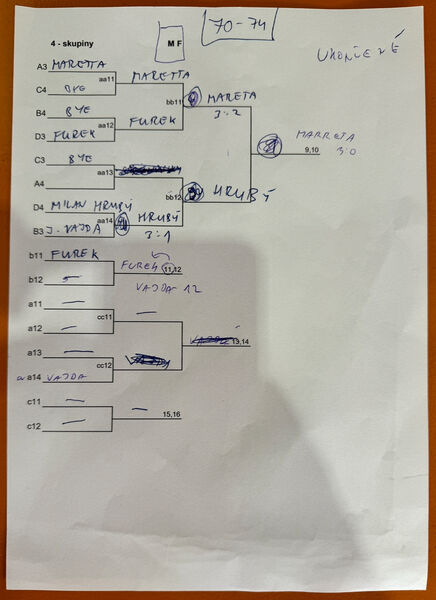 70-74
4 - skupiny
M F
UKONČENÉ
A3 MARETTA
aa11
MARETTA
C4 BYE
bb11
MARETA
3:2
B4 BYE
aa12
FUREK
D3 FUREK
MARRETA
9,10
3:0
C3 BYE
aa13
A4
bb12
HRUBÝ
D4 MILAN HRUBÝ
aa14
HRUBÝ
3:1
B3 J. VAJDA
b11 FUREK
FUREK 11,12
b12 —
VAJDA 12
a11 —
cc11
—
a12 —
13,14
a13 —
cc12
a14 VAJDA
c11 —
—
15,16
c12 —